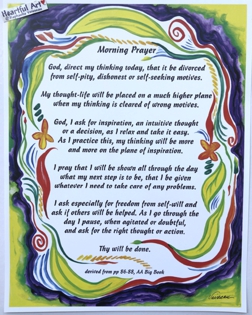 Heartful Art
Morning Prayer
God, direct my thinking today, that it be divorced
from self-pity, dishonest or self-seeking motives.
My thought-life will be placed on a much higher plane
when my thinking is cleared of wrong motives.
God, I ask for inspiration, an intuitive thought
or a decision, as I relax and take it easy.
As I practice this, my thinking will be more
and more on the plane of inspiration.
I pray that I will be shown all through the day
what my next step is to be, that I be given
whatever I need to take care of any problems.
I ask especially for freedom from self-will and
ask if others will be helped. As I go through the
day I pause, when agitated or doubtful,
and ask for the right thought or action.
Thy will be done.
derived from pp 86-88, AA Big Book